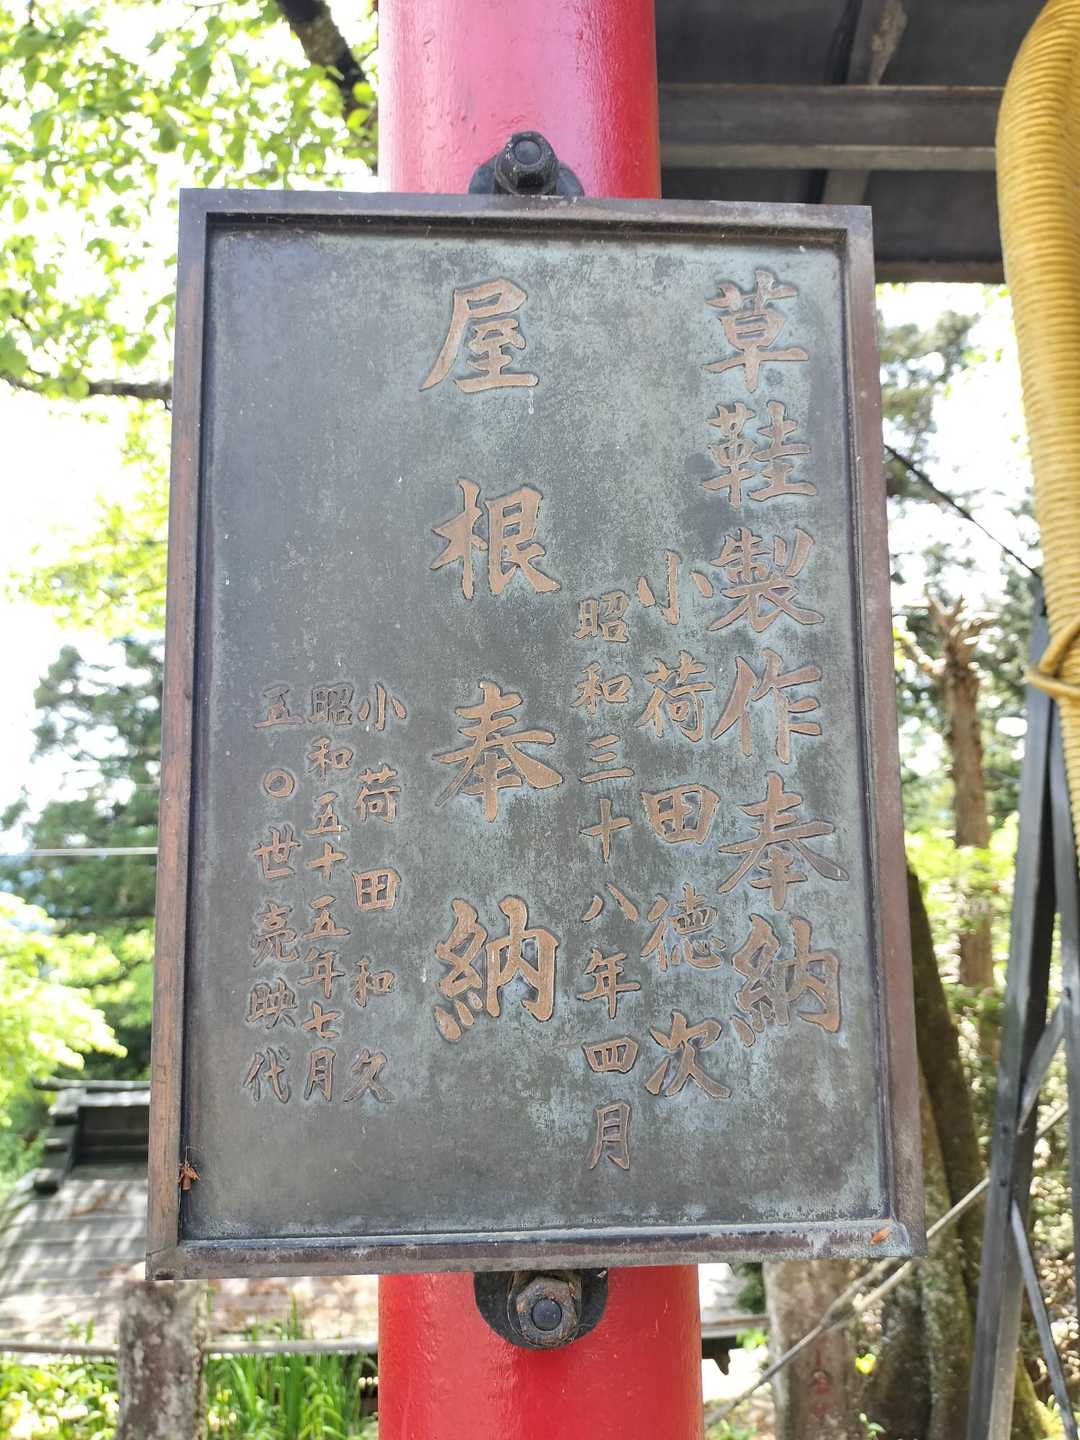 草鞋製作奉納
小荷田徳次
昭和三十八年四月
屋根奉納
小荷田和久
昭和五十五年七月
五〇世亮映代